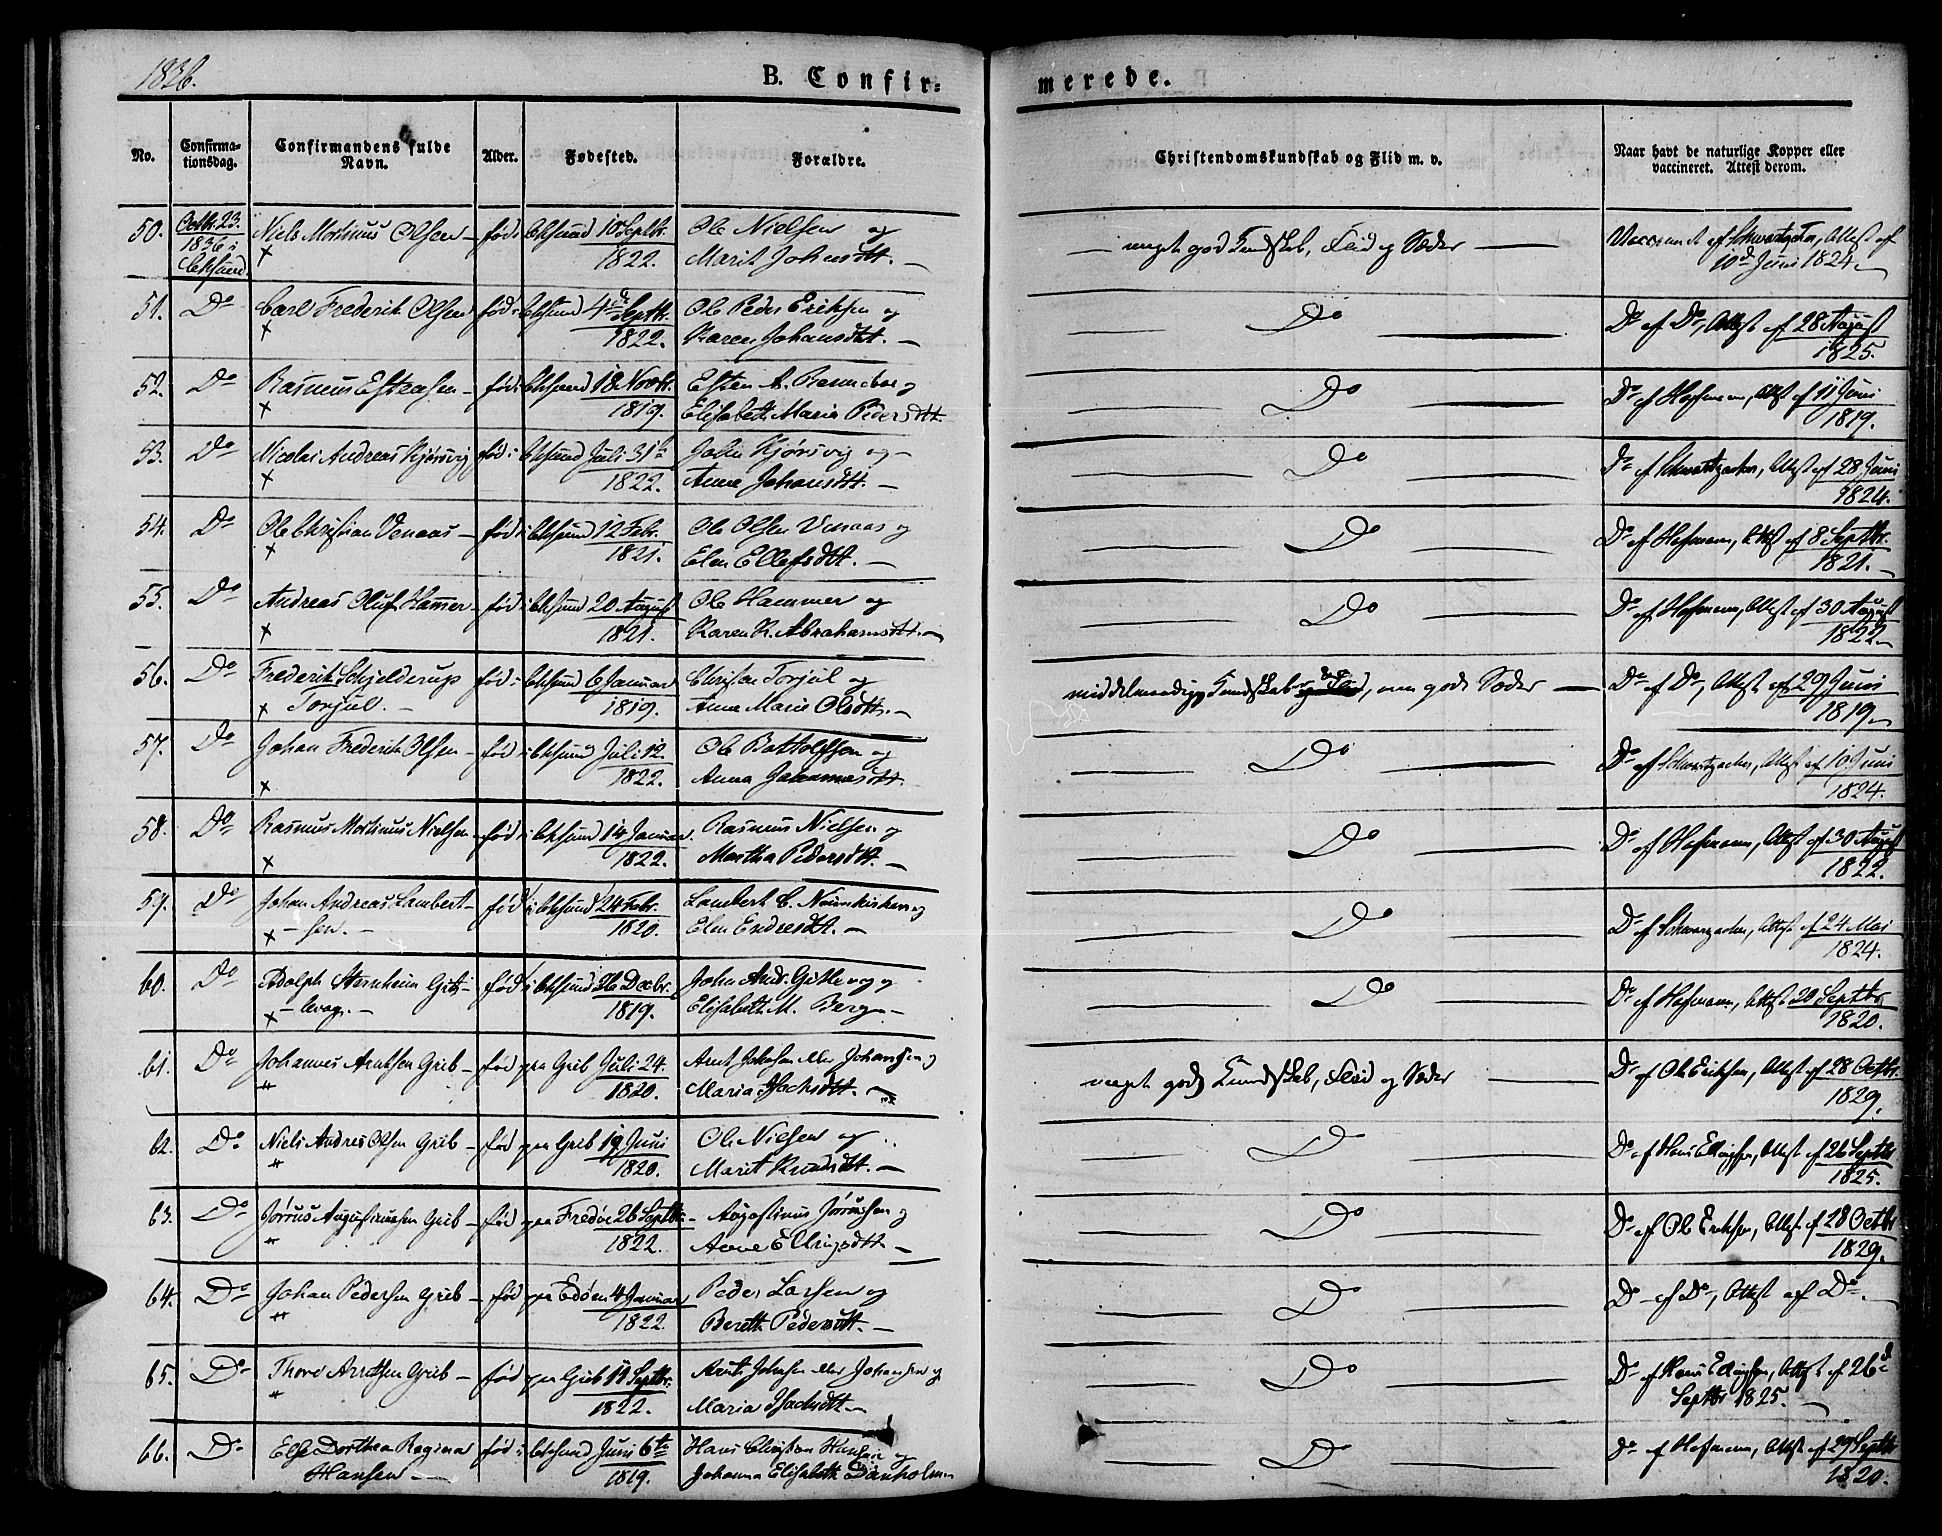 1836.
B. Confir=
merede.
No.
Confirma-
tionsdag.
Confirmandens fulde
Navn.
Alder.
Fødested.
Forældre.
Christendomskundskab og Flid m. v.
Naar havt de naturlige Kopper eller
vaccineret. Attest derom.
50. Octbr. 23. Niels Martinus Olsen – fød i Chrsund 10 Septbr. Ole Nielsen og — meget god Kundskab, Flid og Sæder — af Schwartzacher, Attest af
1836 i 1822. Marit Johnsdtt. — 10d Juni 1824 —
Chrsund
51. Do Carl Frederik Olsen fød i Chrsund 4de Septbr. Ole Peder Eriksen og Do Do af Do, Attest af 28 August
1822. Karen Johansdtt. — 1825.
52. Do Rasmus Estensen – fød i Chrsund 18 Novbr. Esten A. og Do Do af Hofmann, Attest af 11 Juni
1819. Elisabeth Maria Pedersdtt. 1819.
53. Do Nicolai Andreas Kjørsvig, fød i Chrsund Juli 31te John Kjørsvig og – Do Do af Schwartzacher, Attest af 28 Juni
1822. Anne Johansdtt. — 1824.
54. Do Ole Christian Venaas – fød i Chrsund 12 Febr. Ole Olsen Venaas og Do Do af Hofmann, Attest af 8 Septbr.
1821. Elen Ellefsdtt. — 1821. —
55. Do Andreas Oluf Hamer – fød i Chrsund 20 August Ole Hammer og Do Do af Hofmann, Attest af 30 August
1821. Karen K. Abrahamsdtt. — 1822 —
56. Do Frederik Schjelderup fød i Chrsund 6 Januar Christen Torjul og middelmaadig Kundskab og Flid, men gode Sæder — Do af Do, Attest af 29 Juni
Torjul. — 1819. Anne Marie Olsdtt. — 1819 —
57. Do Johan Frederik Olsen – fød i Chrsund Juli 12. Ole Bottolfsen og Do Do af Schwartzacher, Attest af 10 Juni
1822. Anna Johannesdtt. 1824.
58. Do Rasmus Martinus Nielsen – fød i Chrsund 14 Januar Rasmus Nielsen og Do Do af Hofmann, Attest af 30 August
1822. Martha Pedersdtt. — 1822.
59. Do Johan Andreas Lambert- fød i Chrsund 24 Febr. Lambert C. og Do Do af Schwartzacher, Attest af 24 Mai
– sen. – 1820. Elen Endresdtt. — 1824.
60. Do Adolph Sternheim Git- fød i Chrsund 26 Decbr. John Andr. og Do Do af Hofmann, Attest 20 Septbr.
1819. Elisabeth M. Berg — 1820.
61. Do Johannes Arntsen Grib – fød paa Grib Juli 24. Arnt Johnsen eller Johansen og meget god Kundskab, Flid og Sæder — Do af Ole Eriksen, Attest af 28 Octbr.
" 1820. Maria Isachsdtt. — 1829.
62. Do Niels Andreas Olsen Grib – fød paa Grib 19 Juni Ole Nielsen og Do Do af Hans Ellingsen, Attest af 26 Septbr
" 1820. Marit Knudsdtt. — 1825.
63. Do Augustinussen Grib – fød paa Fredøe 26 Septbr. – Augustinus og Do Do af Ole Eriksen, Attest af 28 Octbr
" 1822. Anne Ellingsdtt — 1829.
64. Do Johan Pedersen Grib – fød paa Edøen 4 Januar Peder Larsen og Do Do af Do, Attest af Do.
" 1822. Berett Pedersdtt. —
65. Do Thore Arntsen Grib – fød paa Grib 14 Septbr. Arnt Johnsen eller Johansen og Do Do af Hans Ellingsen, Attest af 26de
" 1822. Maria Isachsdtt — Septbr 1825. —
66. Do Else Dorthea Regina fød i Chrsund Juni 6te Hans Christian Hansen og Do Do af Hofmann, Attest af 29 Septbr
Hansen — 1819. Johanna Elisabeth 1820.